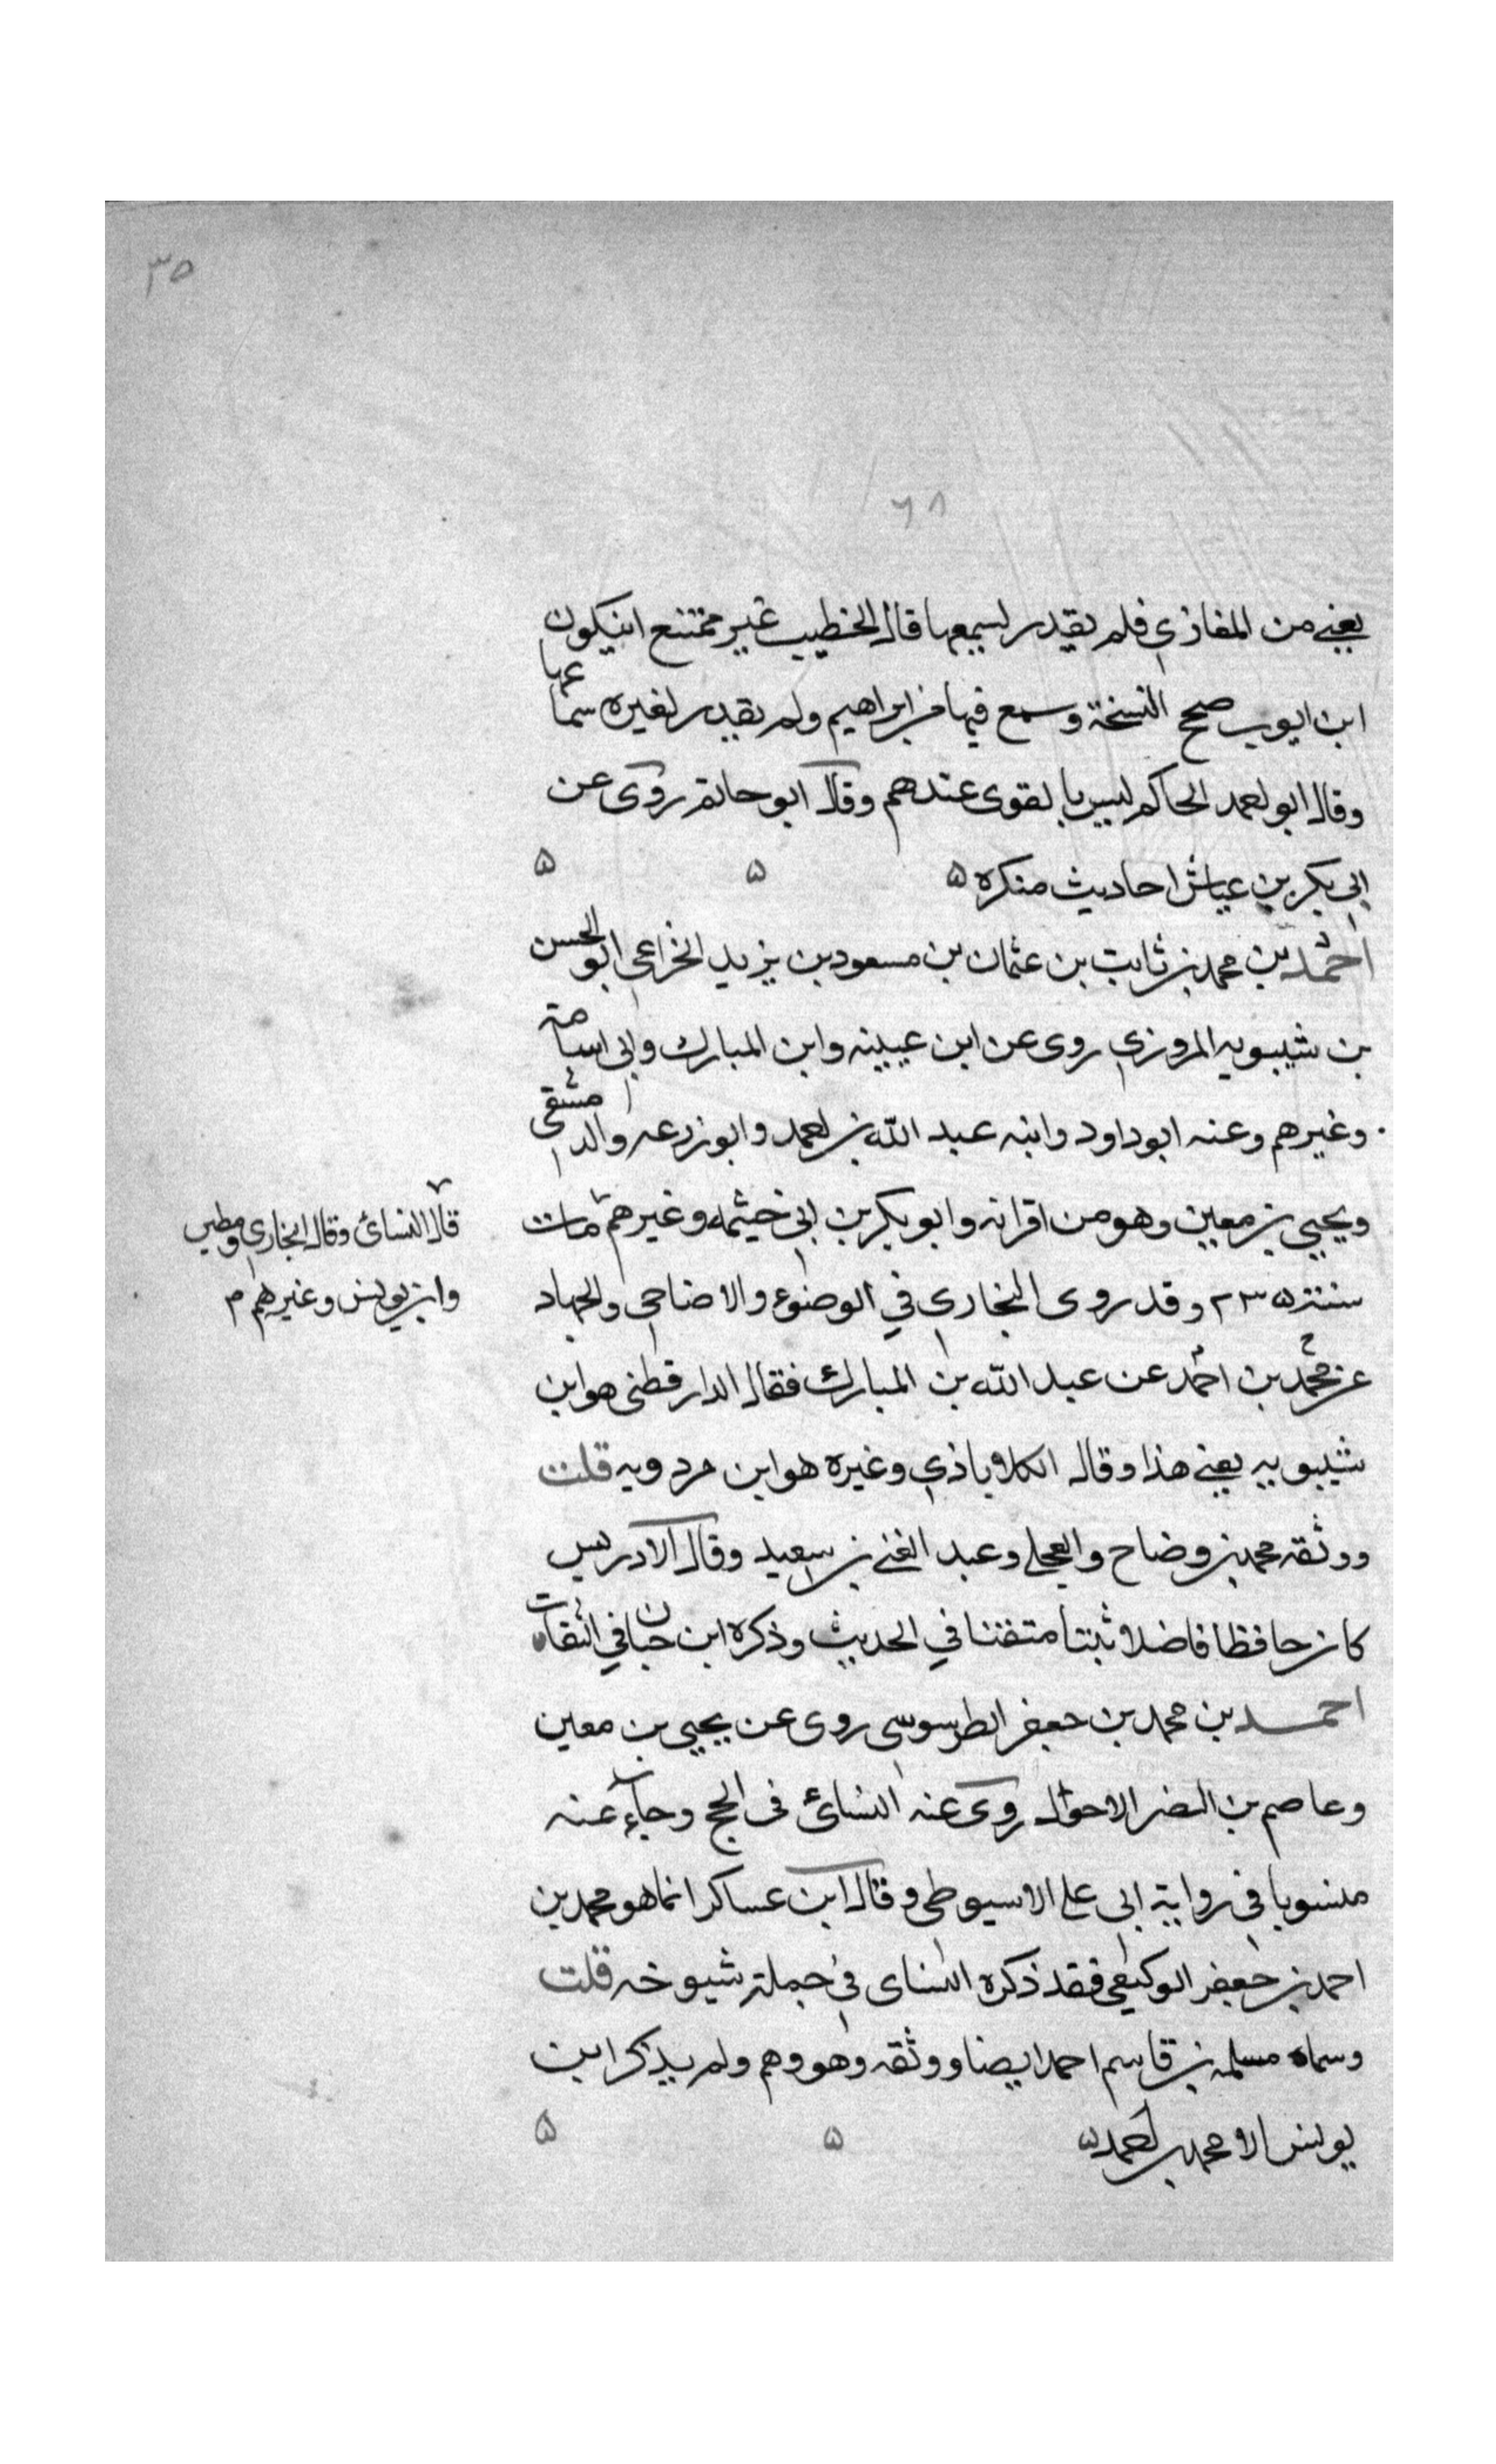 ٣٥
٦٨
يعنى من المغازي فلم يقدر يسمعها قال الخطيب غير ممتنع ان يكون
ابن ايوب صحح النسخة وسمع فيها من ابراهيم ولم يقدر لغيره سماعها
وقال ابو احمد الحاكم ليس بالقوى عندهم وقال ابو حاتم روى عن
ابي بكر بن عياش احاديث منكره ۵ ۵ ۵
احمد بن محمد بن ثابت بن عثمان بن مسعود بن يزيد الخزاعي ابو الحسن
بن شبويه المروزي روى عن ابن عيينه وابن المبارك وابي اسامة
وغيرهم وعنه ابو داود وابنه عبد الله بن احمد وابو زرعه والدمشقي
ويحيى بن معين وهو من اقرانه وابو بكر بن ابي خيثمه وغيرهم مات
قال النسائ وقال البخاري ومطين
سنة ٢٣٥ وقد روى البخارى في الوضوء والاضاحى والجهاد
وابن يونس وغيرهم م
عن محمد بن احمد عن عبد الله بن المبارك فقال الدارقطنى هو ابن
شبويه يعنى هذا وقال الكلاباذي وغيره هو ابن مردويه قلت
ووثقه محمد بن وضاح والعجلي وعبد الغنى بن سعيد وقال الادريسي
كان حافظا فاضلا ثبتا متقنا في الحديث وذكره ابن حبان في الثقات
احمد بن محمد بن جعفر الطرسوسى روى عن يحيى بن معين
وعاصم بن النضر الاحول روى عنه النسائ فى الحج وجاء عنه
منسوبا فى رواية ابى على الاسيوطى وقال ابن عساكر انما هو محمد بن
احمد بن جعفر الوكيعي فقد ذكره النساى في جملة شيوخه قلت
وسماه مسلمه بن قاسم احمد ايضا ووثقه وهو وهم ولم يذكر ابن
يونس الا محمد بن احمد ۵ ۵ ۵